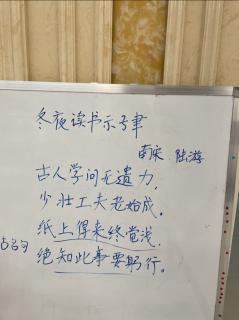 冬夜读书示子聿
南宋 陆游
古人学问无遗力,
少壮工夫老始成。
纸上得来终觉浅,
绝知此事要躬行。
古名句